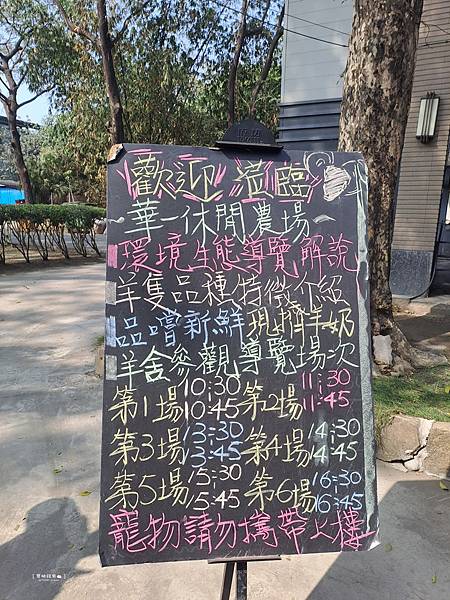 歡迎蒞臨
~華一休閒農場~
環境生態導覽解說
羊隻品種特徵介紹
品嚐新鮮現擠羊奶
羊舍參觀導覽場次
第1場 10:30 10:45 第2場 11:30 11:45
第3場 13:30 13:45 第4場 14:30 14:45
第5場 15:30 15:45 第6場 16:30 16:45
寵物請勿攜帶上樓